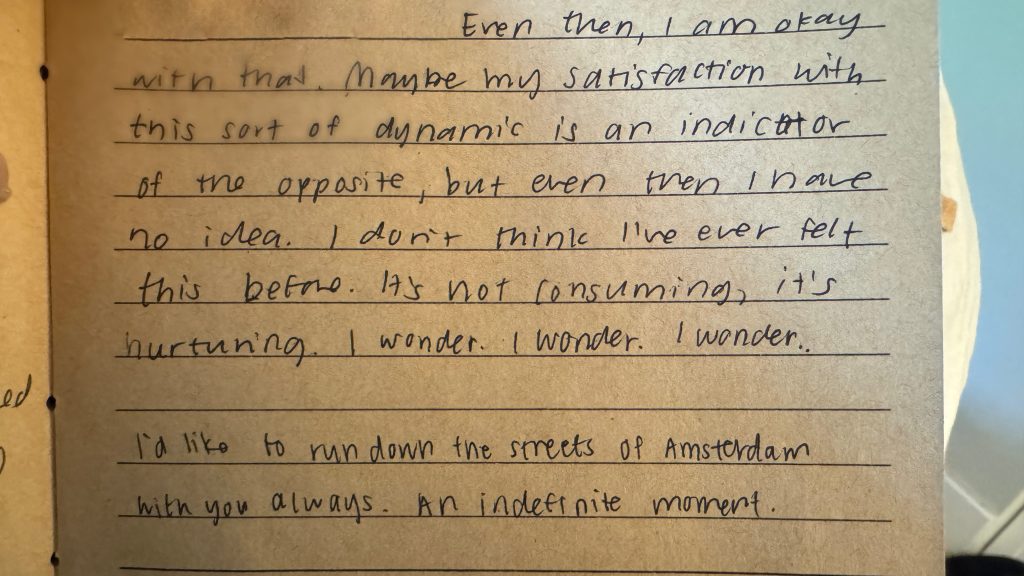 Even then, I am okay
with that. Maybe my satisfaction with
this sort of dynamic is an indicator
of the opposite, but even then I have
no idea. I don't think I've ever felt
this before. It's not consuming, it's
nurturing. I wonder. I wonder. I wonder..
ed
I'd like to run down the streets of Amsterdam
with you always. An indefinite moment.